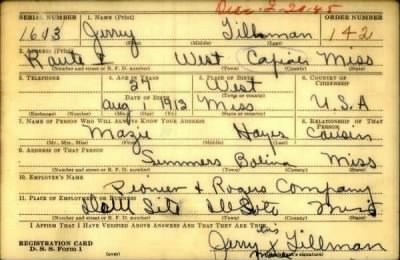 Disc. 2-20-45
SERIAL NUMBER 1. NAME (Print) ORDER NUMBER
1613 Jerry Tillman 142
(First) (Middle) (Last)
2. ADDRESS (Print)
Route 2 West Copiah Miss
(Number and street or R. F. D. number) (Town) (County) (State)
3. TELEPHONE 4. AGE IN YEARS 5. PLACE OF BIRTH 6. COUNTRY OF CITIZENSHIP
27 West
DATE OF BIRTH (Town or county)
Aug 1 1913 Miss U.S.A
(Exchange) (Number) (Mo.) (Day) (Yr.) (State or country)
7. NAME OF PERSON WHO WILL ALWAYS KNOW YOUR ADDRESS 8. RELATIONSHIP OF THAT PERSON
Mazie Hayes Cousin
(Mr., Mrs., Miss) (First) (Middle) (Last)
9. ADDRESS OF THAT PERSON
Summers Miss
(Number and street or R. F. D. number) (Town) (County) (State)
10. EMPLOYER'S NAME
Pioneer & Company
11. PLACE OF EMPLOYMENT OR BUSINESS
Miss
(Number and street or R. F. D. number) (Town) (County) (State)
I AFFIRM THAT I HAVE VERIFIED ABOVE ANSWERS AND THAT THEY ARE TRUE.
his
REGISTRATION CARD Jerry X Tillman
D. S. S. Form 1 (over) (Registrant's signature)